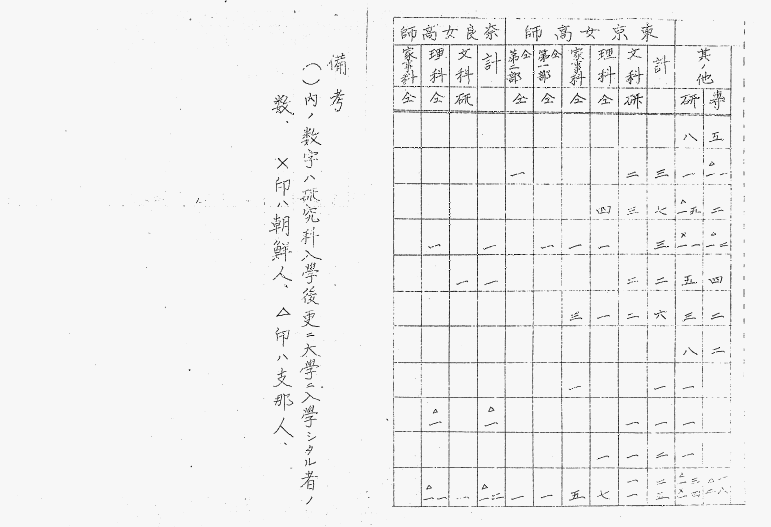 其ノ他
専 五 二 四 二 二
研 八 一 五 三 八 一 一 一
東京女高師
計 三 七 三 二 六 一 一 二
文科 研 二 三 二 二 一 一 一一
理科 仝 四 一 一 一 七
家事科 仝 一 三 一 五
仝第一部 仝 一 一
仝第二部 仝 一 一
奈良女高師
計 一 一 △一
文科 研 一 一
理科 仝 一 △一 △一一
家事科 仝
備考
（）内ノ数字ハ研究科入学後更ニ大学ニ入学シタル者ノ
数、 ×印ハ朝鮮人、△印ハ支那人、